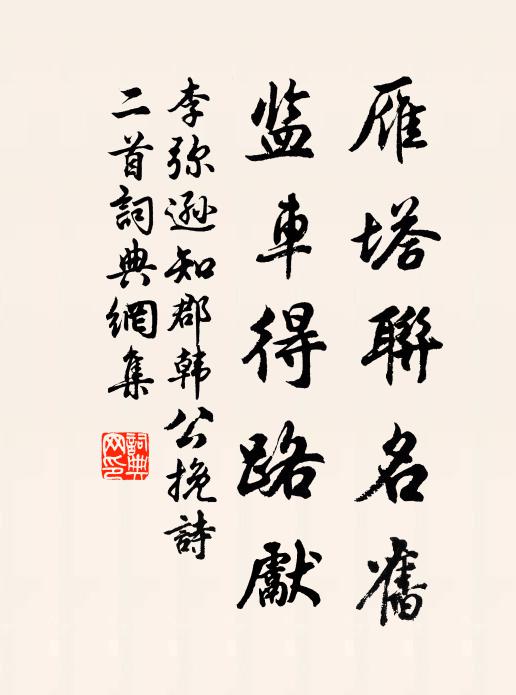 雁塔聯名舊
监車得路獻
李弥遜知郡韩公挽詩
二首詞典網集
詞典網印